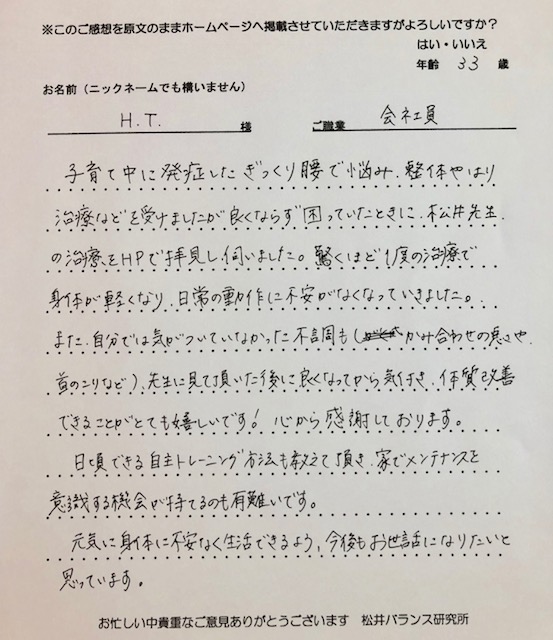 ※このご感想を原文のままホームページへ掲載させていただきますがよろしいですか？
はい・いいえ
年齢 33 歳
お名前（ニックネームでも構いません）
H.T. 様 ご職業 会社員
子育て中に発症したぎっくり腰で悩み、整体やはり
治療などを受けましたが良くならず困っていたときに、松井先生
の治療をHPで拝見し、伺いました。驚くほど1度の治療で
身体が軽くなり、日常の動作に不安がなくなっていきました。
また、自分では気がついていなかった不調も（かみ合わせの悪さや、
首のこりなど）、先生に見て頂いた後に良くなってから気付き、体質改善
できることがとても嬉しいです！心から感謝しております。
日頃できる自主トレーニング方法も教えて頂き、家でメンテナンスを
意識する機会が持てるのも有難いです。
元気に身体に不安なく生活できるよう、今後もお世話になりたいと
思っています。
お忙しい中貴重なご意見ありがとうございます 松井バランス研究所